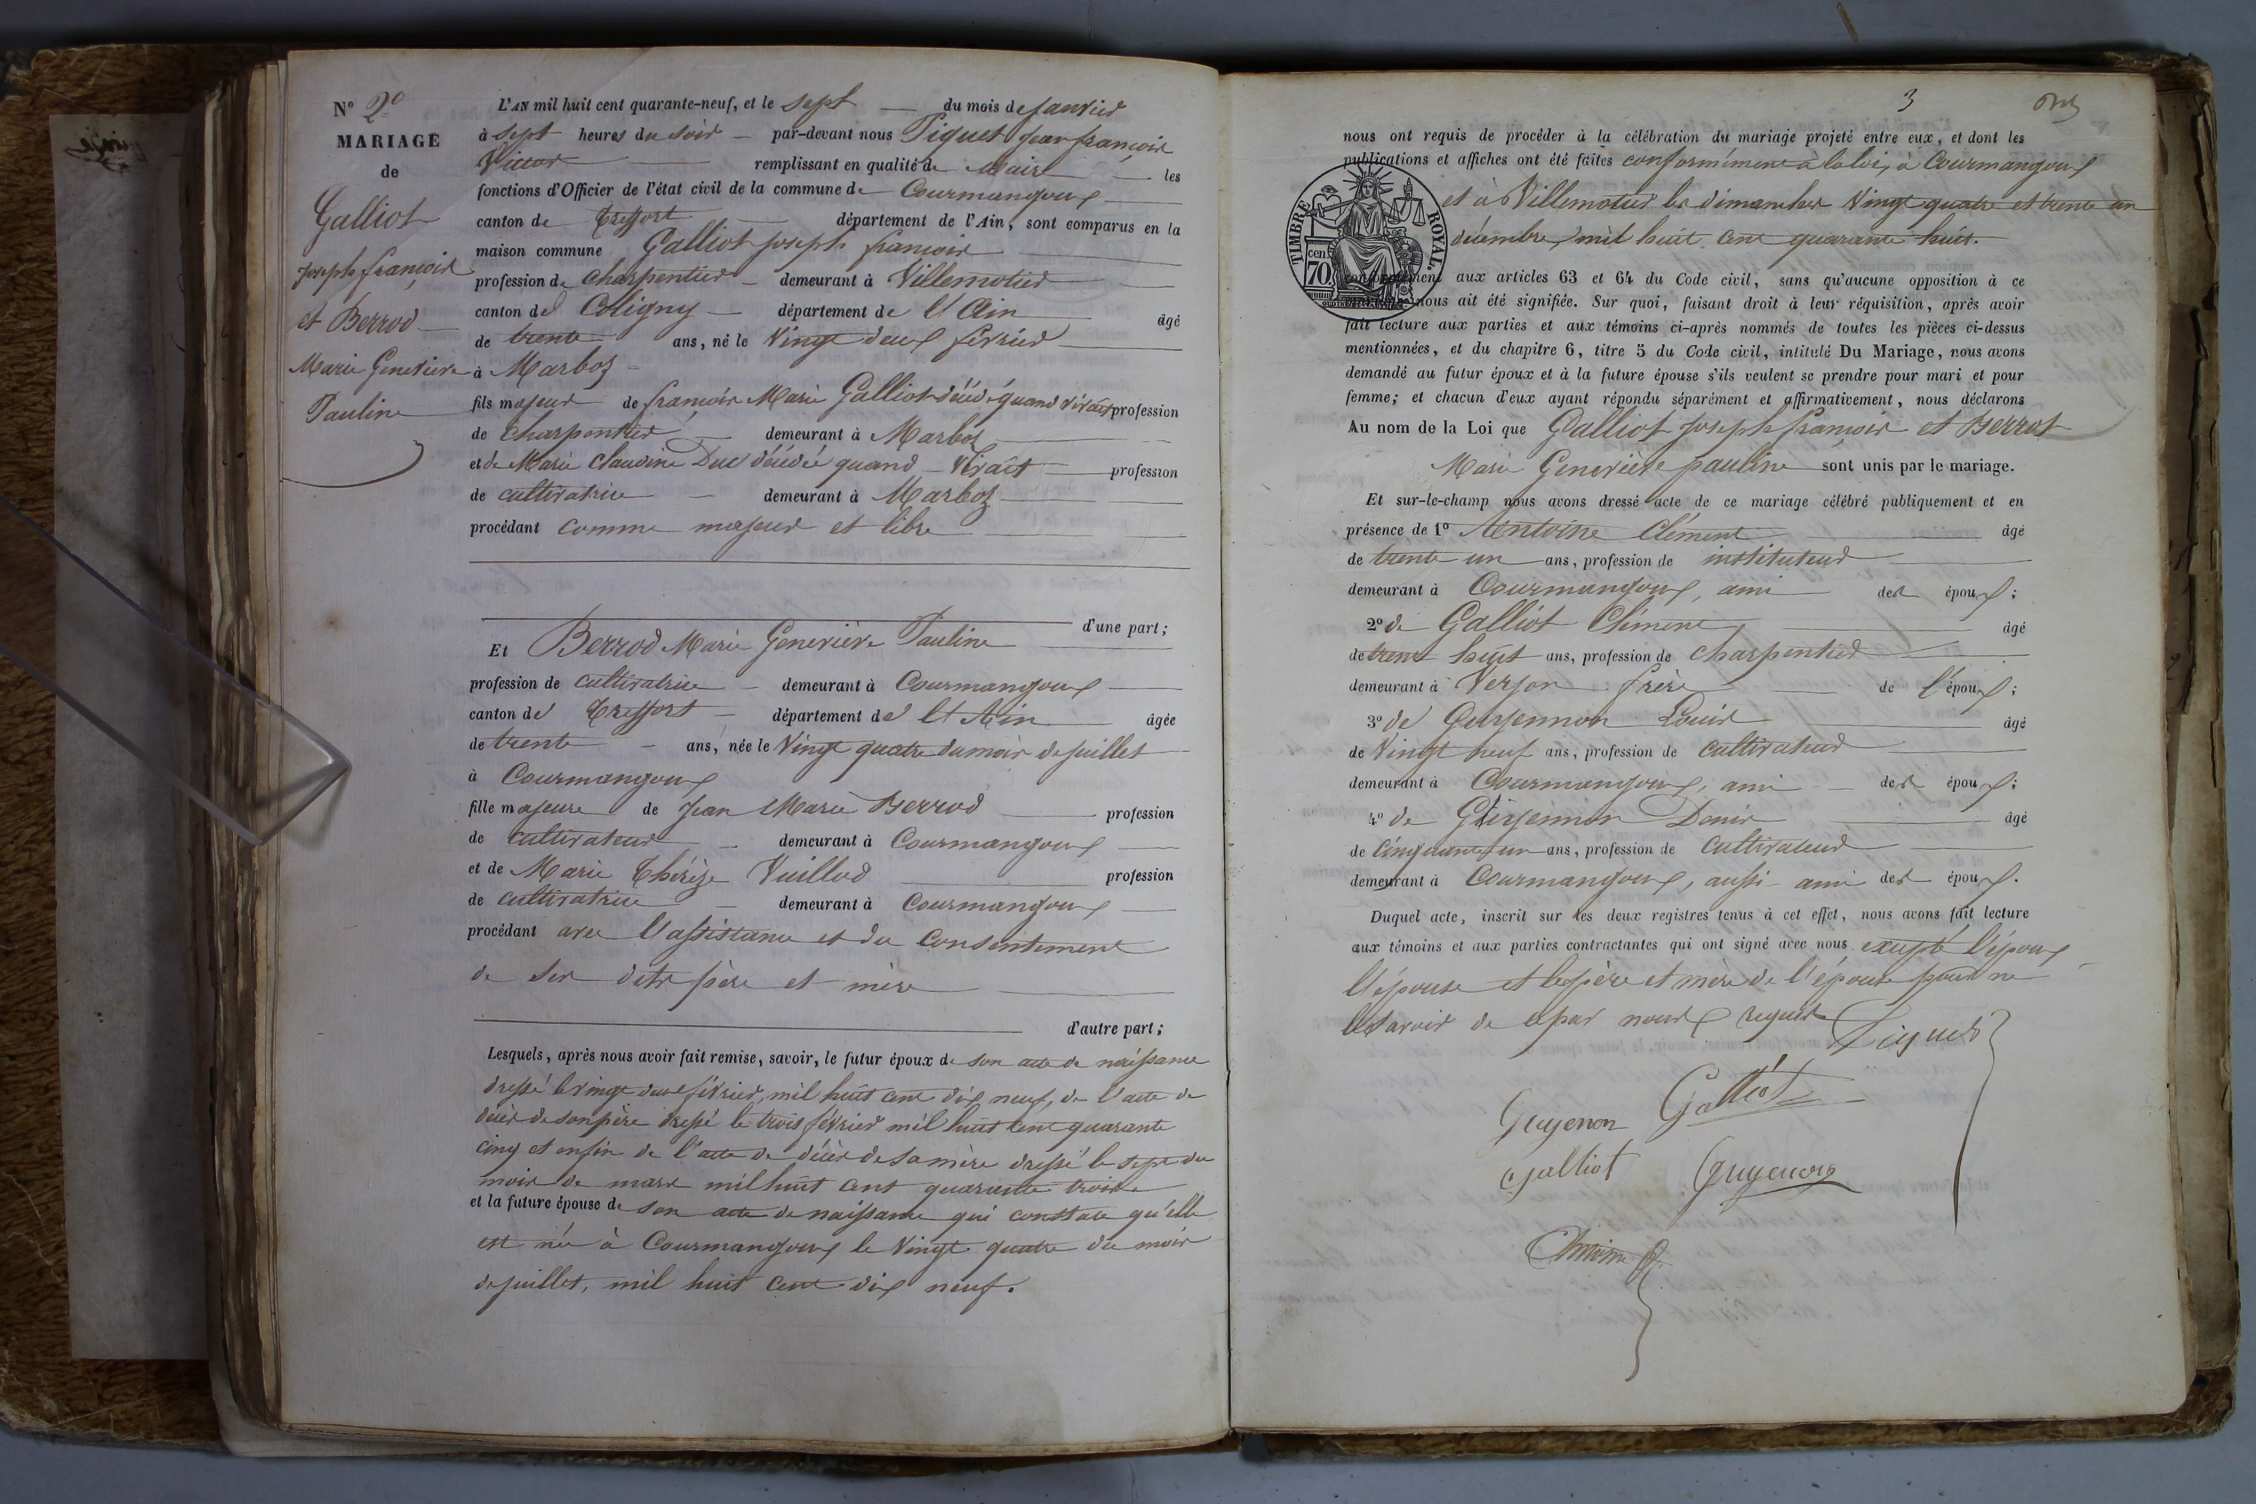 N° 2°
MARIAGE
de
Galliot
joseph françois
et Berrod
Marie Genevieve
Pauline
L'AN mil huit cent quarante-neuf, et le sept du mois de janvier
à sept heures du soir par-devant nous Piquet jean françois
Victor remplissant en qualité de Maire les
fonctions d'Officier de l'état civil de la commune de Courmangoux
canton de Treffort département de l'Ain, sont comparus en la
maison commune Galliot joseph françois
profession de charpentier demeurant à Villemotier
canton de Coligny département de l'Ain âgé
de trente ans, né le vingt deux février
à Marboz
fils majeur de françois Marie Galliot décédé quand vivait profession
de charpentier demeurant à Marboz
et de Marie Claudine Duc décédée quand vivait profession
de cultivatrice demeurant à Marboz
procédant comme majeur et libre
d'une part;
Et Berrod Marie Genevière Pauline
profession de cultivatrice demeurant à Courmangoux
canton de Treffort département de l'Ain âgée
de trente ans, née le vingt quatre du mois de juillet
à Courmangoux
fille majeure de Jean Marie Berrod profession
de cultivateur demeurant à Courmangoux
et de Marie Thérèze Vuillod profession
de cultivatrice demeurant à Courmangoux
procédant avec l'assistance et du consentement
de ses dits père et mère
d'autre part;
Lesquels, après nous avoir fait remise, savoir, le futur époux de son acte de naissance
dressé le vingt deux février, mil huit cent dix neuf, de l'acte de
décès de son père dressé le trois février mil huit cent quarante
cinq et enfin de l'acte de décès de sa mère dressé le sept du
mois de mars mil huit cent quarante trois
et la future épouse de son acte de naissance qui constate qu'elle
est née à Courmangoux le vingt quatre du mois
de juillet, mil huit cent dix neuf.
3
nous ont requis de procéder à la célébration du mariage projeté entre eux, et dont les
publications et affiches ont été faites conformément à la loi, à Courmangoux
et à Villemotier les dimanches vingt quatre et trente un
décembre mil huit cent quarante huit.
TIMBRE ROYAL.
cen. 70
conformément aux articles 63 et 64 du Code civil, sans qu'aucune opposition à ce
mariage nous ait été signifiée. Sur quoi, faisant droit à leur réquisition, après avoir
fait lecture aux parties et aux témoins ci-après nommés de toutes les pièces ci-dessus
mentionnées, et du chapitre 6, titre 5 du Code civil, intitulé Du Mariage, nous avons
demandé au futur époux et à la future épouse s'ils veulent se prendre pour mari et pour
femme; et chacun d'eux ayant répondu séparément et affirmativement, nous déclarons
Au nom de la Loi que Galliot joseph françois et Berrot
Marie Genevière pauline sont unis par le mariage.
Et sur-le-champ nous avons dressé acte de ce mariage célébré publiquement et en
présence de 1° Antoine Clément âgé
de trente un ans, profession de instituteur
demeurant à Courmangoux, ami des époux;
2° de Galliot Clément âgé
de trente huit ans, profession de charpentier
demeurant à Verjon frère de l'époux;
3° de Guyennon Louis âgé
de vingt neuf ans, profession de cultivateur
demeurant à Courmangoux, ami des époux;
4° de Guyennon Denis âgé
de cinquante un ans, profession de cultivateur
demeurant à Courmangoux, aussi ami des époux.
Duquel acte, inscrit sur les deux registres tenus à cet effet, nous avons fait lecture
aux témoins et aux parties contractantes qui ont signé avec nous excepté l'époux
l'épouse et les père et mère de l'épouse pour ne
le savoir de ce par nous requis Piquet
Guyenon Galliot
Galliot Guyenon
Antoine C.